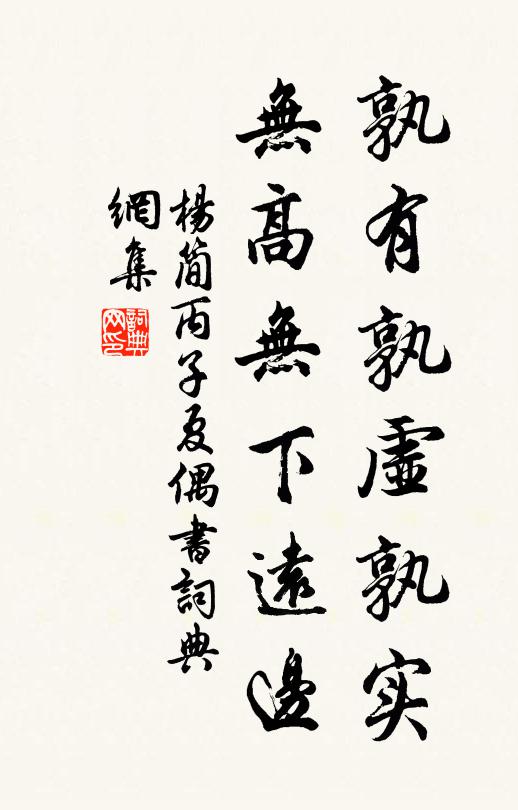 孰有孰虛孰实
無高無下遠邊
楊简丙子夏偶書詞典
網集
詞典
网印